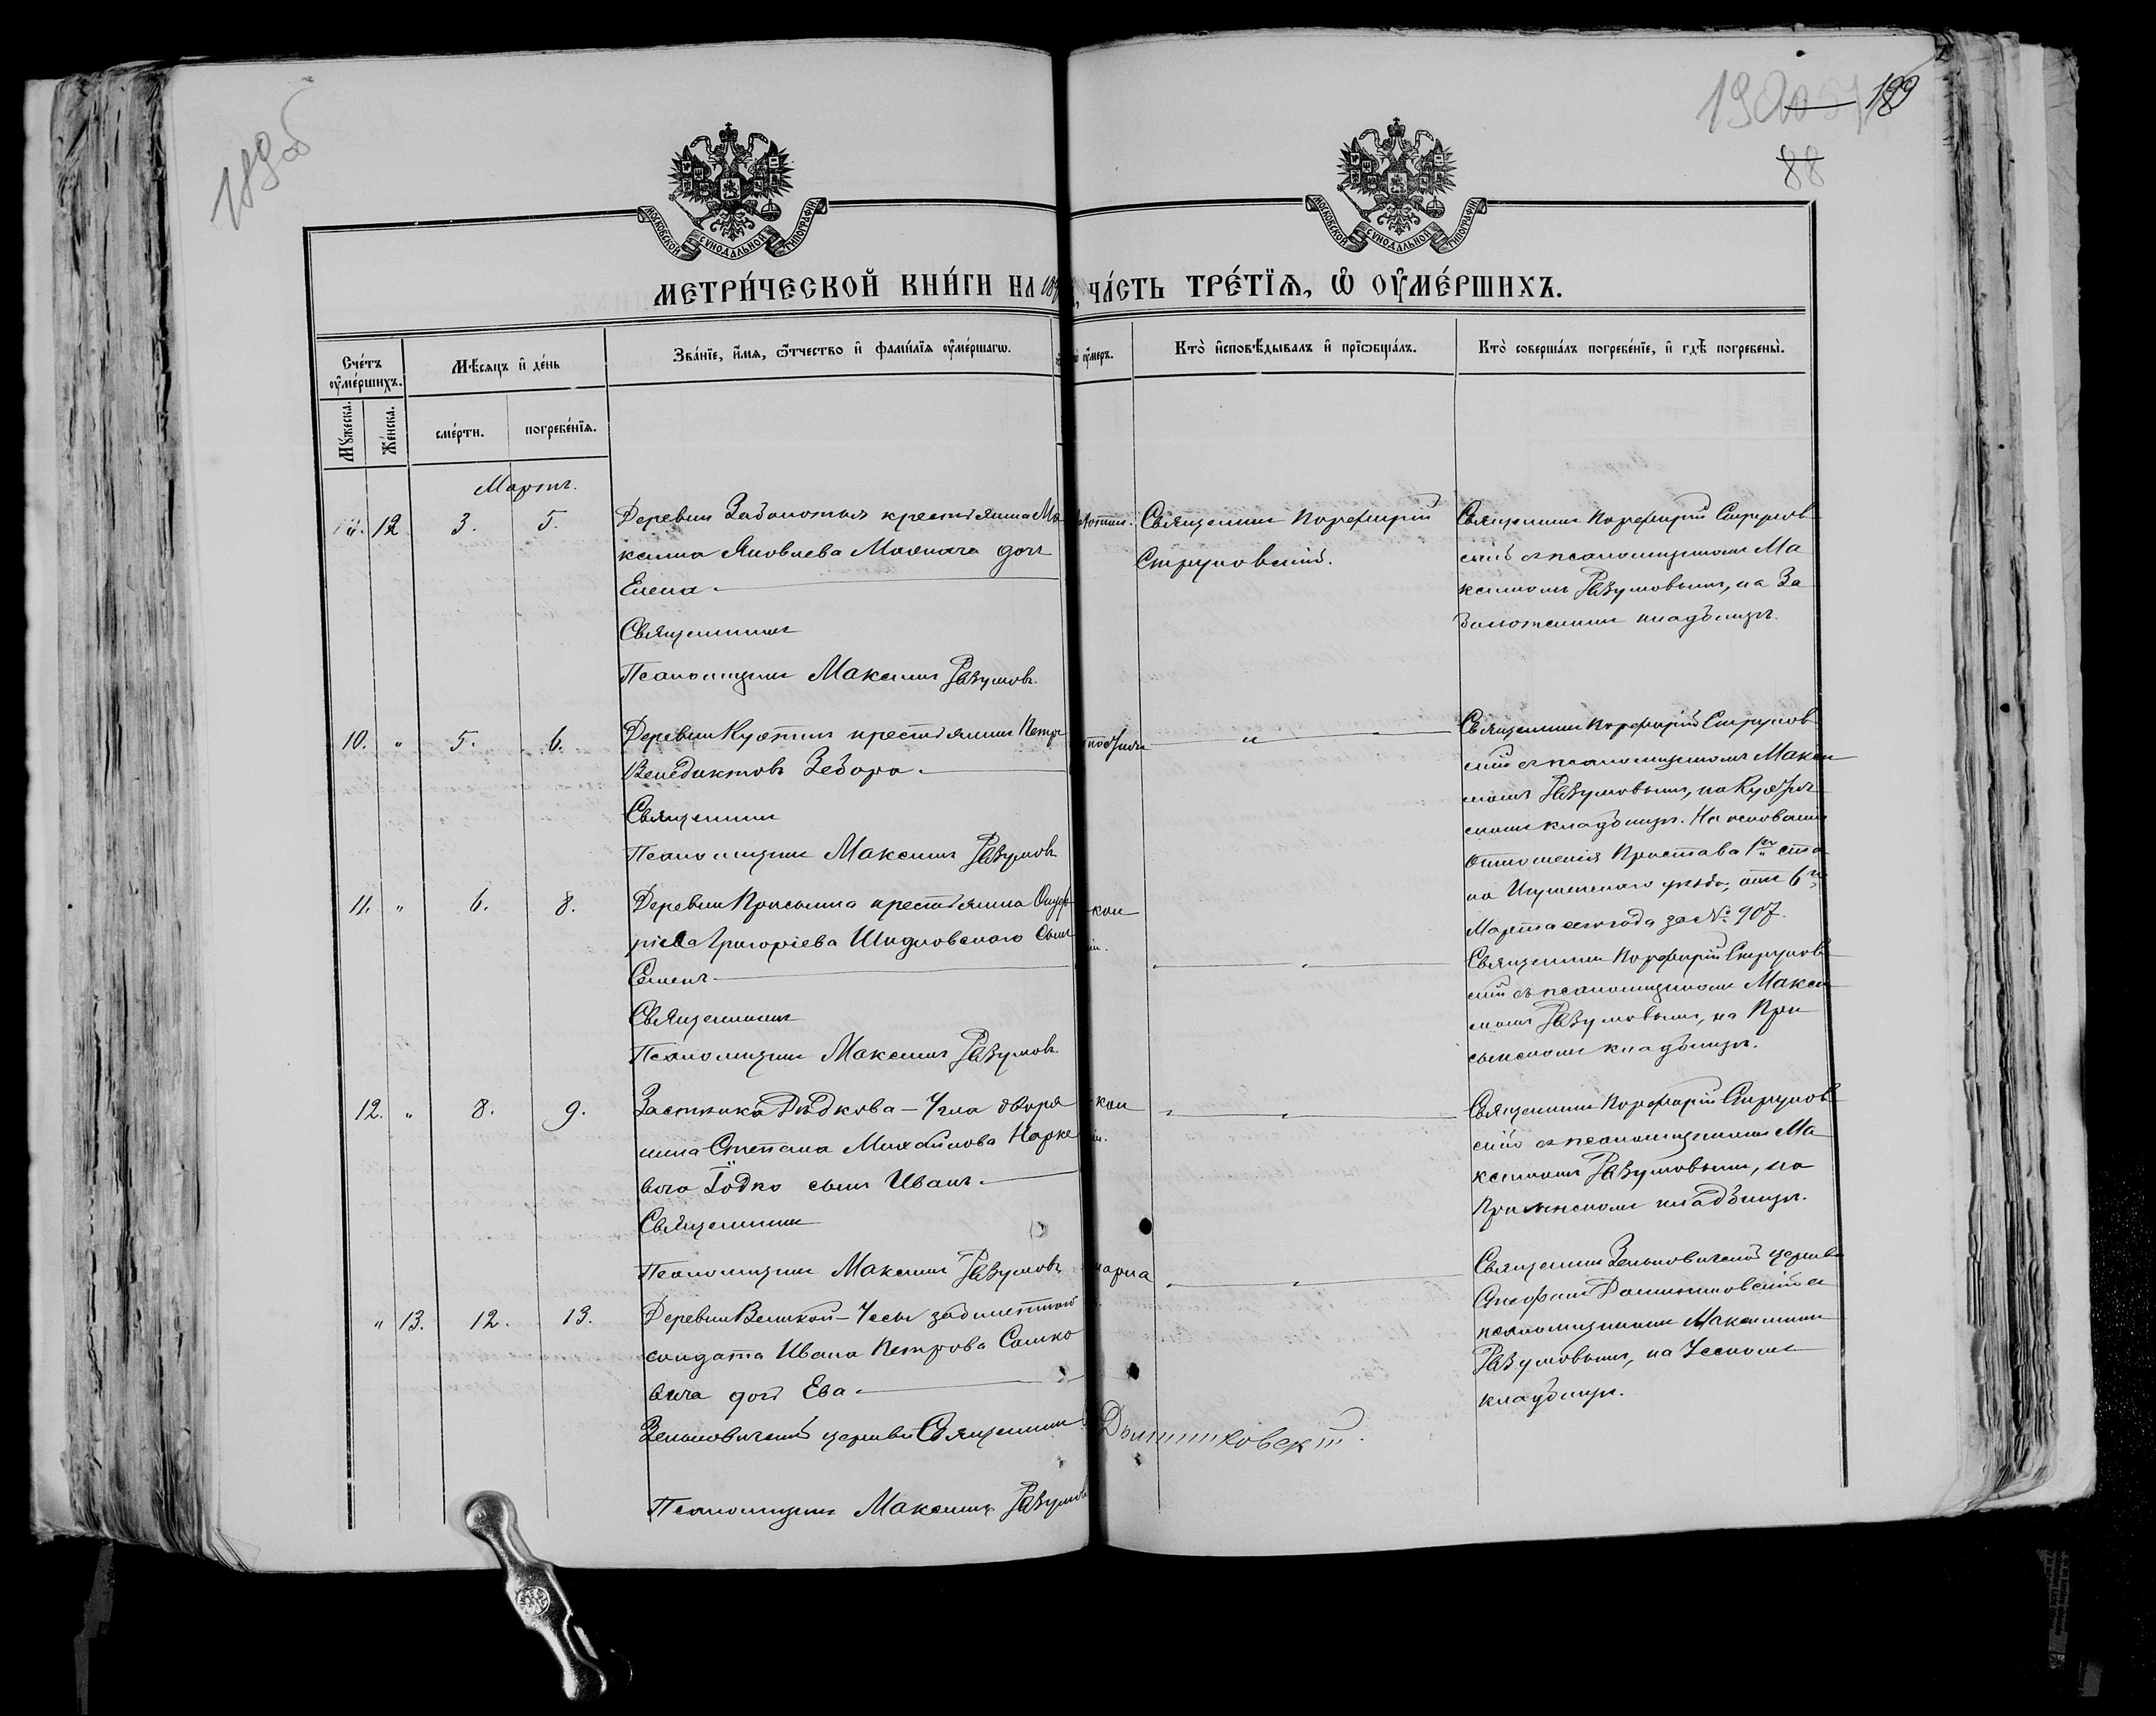 189об
190
189
88
МОСКОВСКОЙ СѴНОДАЛЬНОЙ ТИПОГРАФІИ
МОСКОВСКОЙ СѴНОДАЛЬНОЙ ТИПОГРАФІИ
МЕТРИ́ЧЕСКОЙ КНИ́ГИ НА 189 ЧА́СТЬ ТРЕ́ТЇѦ, Ѡ҆ ОУ҆МЕ́РШИХЪ.
Сче́тъ оу҆ме́ршихъ.
Мѣ́сяцъ и҆ де́нь
Зва́нїе, и҆́мѧ, ѻ҆́тчество и҆ фами́лїѧ оу҆ме́ршагѡ.
оу҆́меръ.
Кто̀ и҆сповѣ́дывалъ и҆ прїѡбща́лъ.
Кто̀ соверша́лъ погребе́нїе, и҆ гдѣ̀ погребены̀.
Мꙋ́жеска.
Же́нска.
сме́рти.
погребе́нїѧ.
Мартъ.
12 3. 5.
Деревни Заболотья крестьянина Ма
ксима Яковлева дочь
Елена
Священникъ
Псаломщикъ Максимъ Разумовъ.
Священникъ Порфирій
Струковскій.
Священникъ Порфирій Струков
скій съ псаломщикомъ Ма
ксимомъ Разумовымъ, на За
болотскомъ кладбищѣ.
10. " 5. 6.
Деревни крестьянинъ Петръ
Венедиктовъ Зебора
Священникъ
Псаломщикъ Максимъ Разумовъ
"
Священникъ Порфирій Струков
скій съ псаломщикомъ Макси
момъ Разумовымъ, на
скомъ кладбищѣ. На основаніи
отношенія Пристава 1го ста
на Игуменскаго уѣзда, отъ 6го
Марта сего года за № 907.
11. " 6. 8.
Деревни крестьянина Онуф
рія Григоріева Шидловскаго сынъ
Семенъ
Священникъ
Псаломщикъ Максимъ Разумовъ
"
Священникъ Порфирій Струков
скій съ псаломщикомъ Макси
момъ Разумовымъ, на При
скомъ кладбищѣ.
12. " 8. 9.
Застѣнка Рѣдкова-Угла дворя
нина Степана Михайлова Нарке
вича Іодко сынъ Иванъ
Священникъ
Псаломщикъ Максимъ Разумовъ
"
Священникъ Порфирій Струков
скій съ псаломщикомъ Ма
ксимомъ Разумовымъ, на
кладбищѣ.
" 13. 12. 13.
Деревни Великой-Уссы
солдата Ивана Петрова Сашко
вича дочь Ева
церкви Священникъ
Псаломщикъ Максимъ Разумовъ
"
Священникъ церкви
съ
псаломщикомъ Максимомъ
Разумовымъ, на Усскомъ
кладбищѣ.